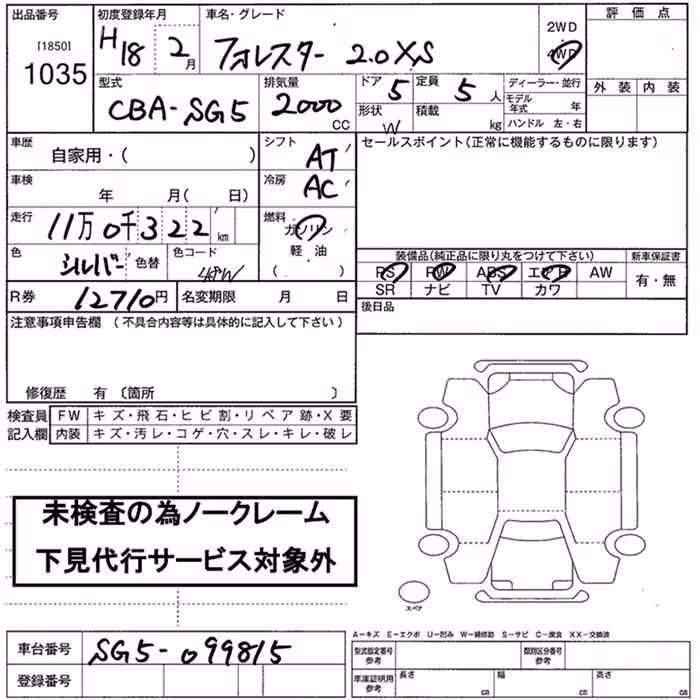 出品番号 初度登録年月 車名・グレード 2WD 評価点
[1850] 1035 H18 2月 フォレスター 2.0XS 4WD
外装 内装
型式 排気量 ドア 5 定員 5人 ディーラー・並行
CBA-SG5 2000CC 形状 W 積載 kg モデル年式 年
ハンドル 左・右
車歴 自家用・( ) シフト AT セールスポイント(正常に機能するものに限ります)
車検 年 月( 日) 冷房 AC
走行 11万0千322km 燃料 ガソリン
軽油
( )
色 シルバー 色替 色コード
装備品(純正品に限り丸をつけて下さい) 新車保証書
PS PW ABS エアB AW 有・無
SR ナビ TV カワ
R券 12710円 名変期限 月 日
後日品
注意事項申告欄 (不具合内容等は具体的に記入して下さい)
修復歴 有 〔箇所 〕
検査員 FW キズ・飛石・ヒビ割・リペア跡・X要
記入欄 内装 キズ・汚レ・コゲ・穴・スレ・キレ・破レ
未検査の為ノークレーム
下見代行サービス対象外
スペア
A-キズ E-エクボ U-凹み W-補修跡 S-サビ C-腐食 XX-交換済
車台番号 SG5-099815
型式指定番号 参考 類別区分番号 参考
登録番号
車庫証明用 参考 長さ cm 幅 cm 高さ cm